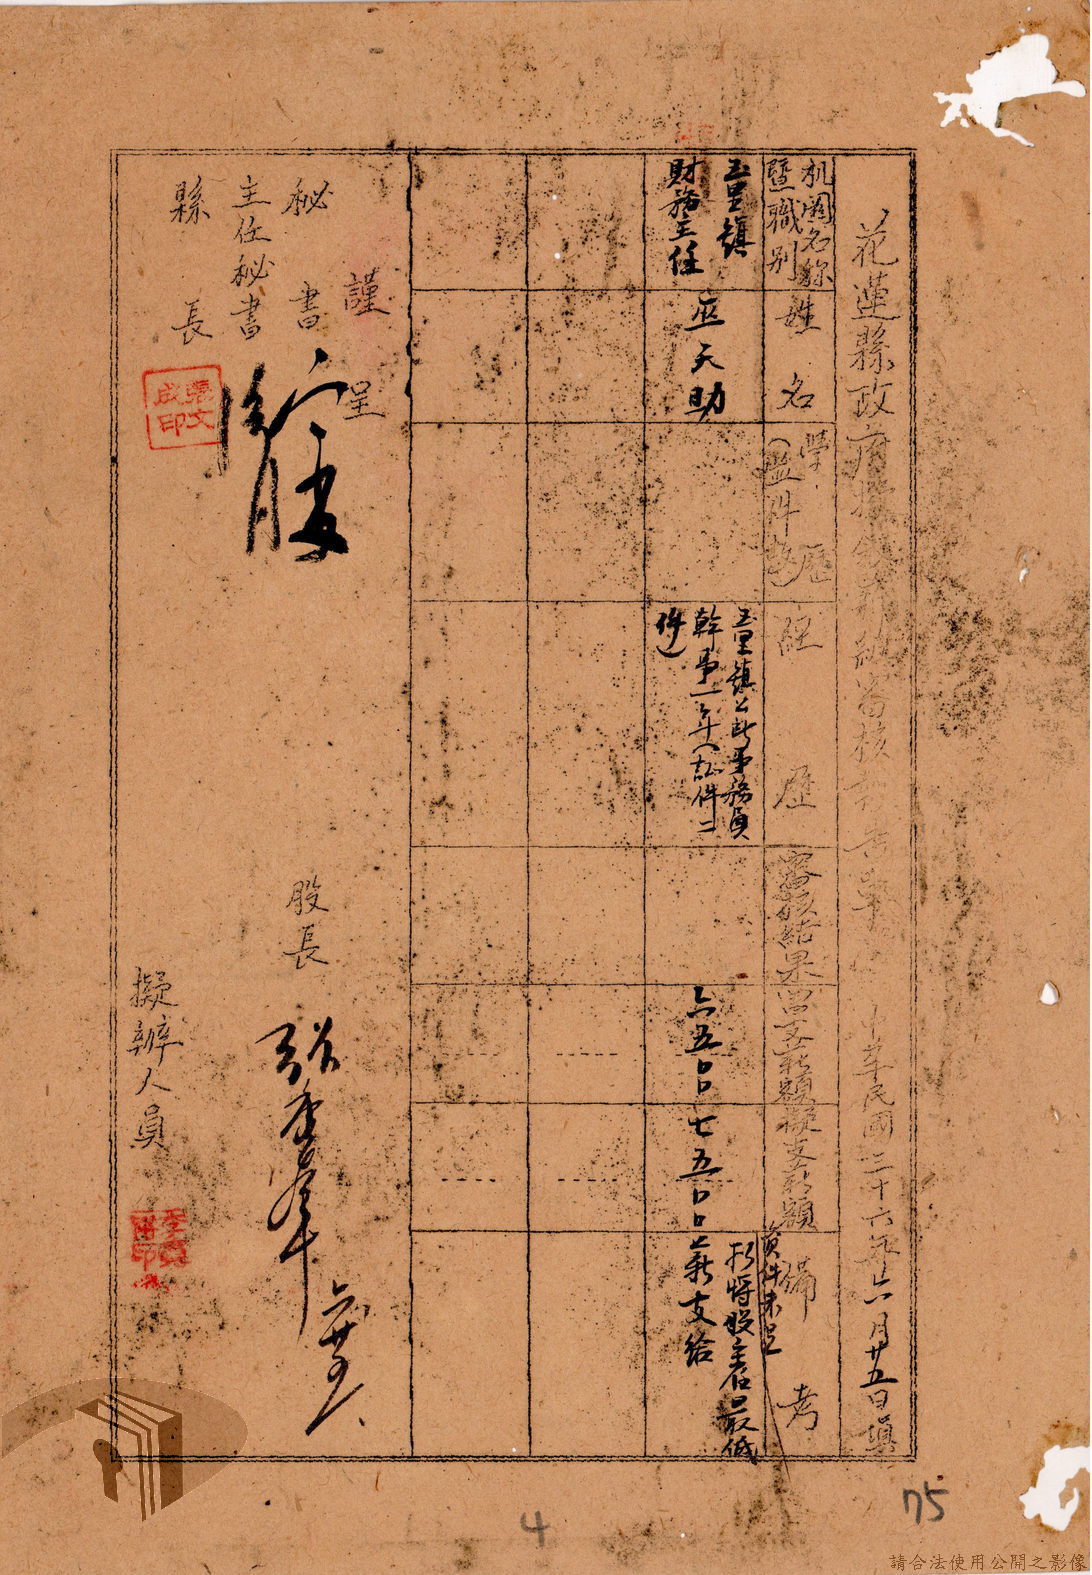 花蓮縣政府擬敘薪俸審核報告單
中華民國三十六年六月廿五日填
机關名稱
暨職別
姓名
學歷
(證件號)
經歷
審核結果
曾支薪額
擬支薪額
備考
玉里鎮
財務主任
巫天助
玉里鎮公所事務員
幹事一年(証件二
件)
六五口口
七五口口
資件未足
折將股主任最低
薪支給
謹呈
秘書
主任秘書
縣長
張文成印
股長
擬辦人員
4
75
請合法使用公開之影像